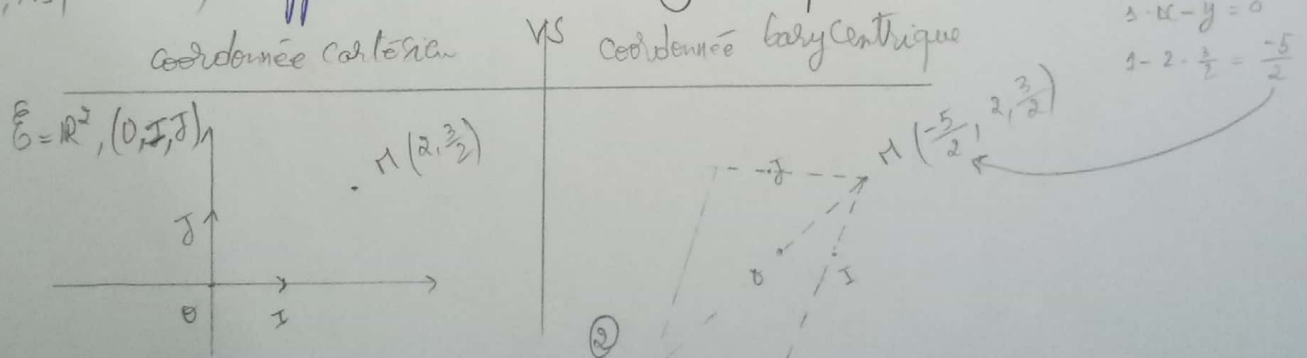 coordonnée cartésien VS coordonnée barycentrique
1 - x - y = 0
1 - 2 - 3/2 = -5/2
ℰ = ℝ², (O, I, J)
M (2, 3/2)
M (-5/2, 2, 3/2)
J
O
I
J
O
I
②